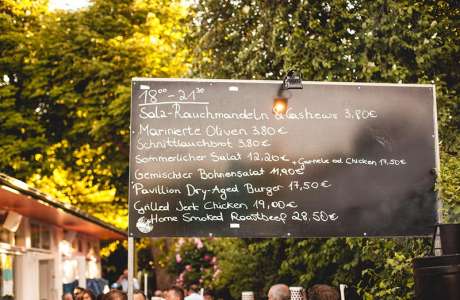 18⁰⁰ - 21³⁰
Salz-Rauchmandeln & Cashews 3,80€
Marinierte Oliven 3,80€
Schnittlauchbrot 3,80€
Sommerlicher Salat 12,20€ + Garnele od Chicken 17,50€
Gemischter Bohnensalat 11,90€
Pavillion Dry-Aged Burger 17,50€
Grilled Jerk Chicken 19,00€
Home Smoked Roastbeef 28,50€